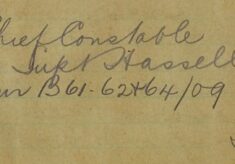 Chief Constable
Supt Hassell
B61-62+64/09